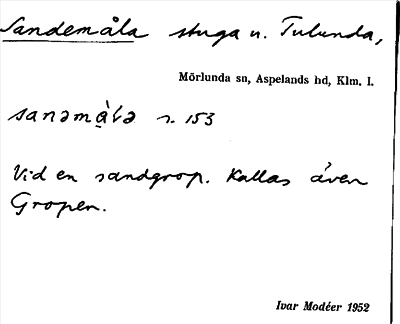 Sandemåla stuga u. Tulunda,
Mörlunda sn, Aspelands hd, Klm. l.
s. 153
Vid en sandgrop. Kallas även
Gropen.
Ivar Modéer 1952